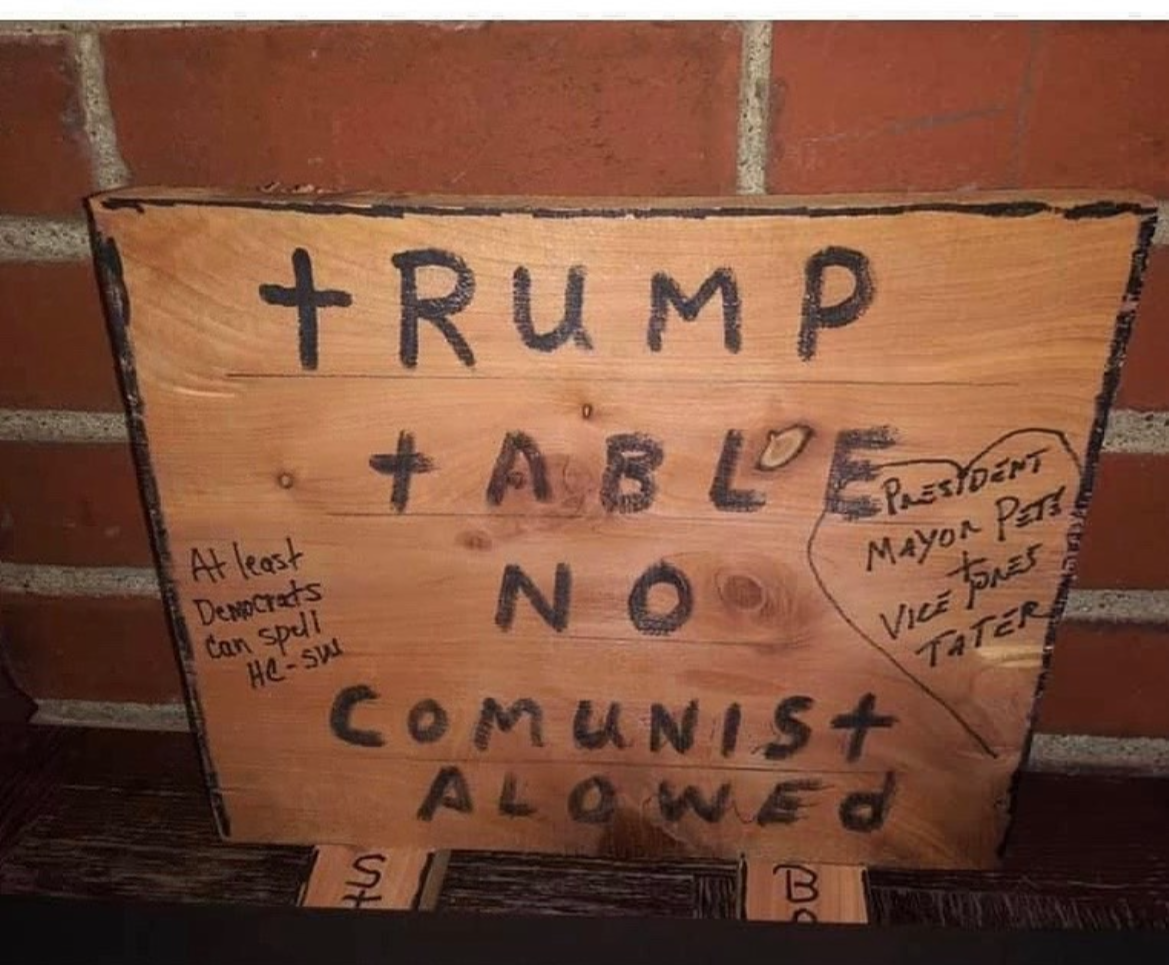 tRUMP
tABLE
NO
COMUNISt
ALOWEd
At least
Democrats
Can spell
PRESIDENT
MAYOR PETE
+
VICE
TATER
S
B